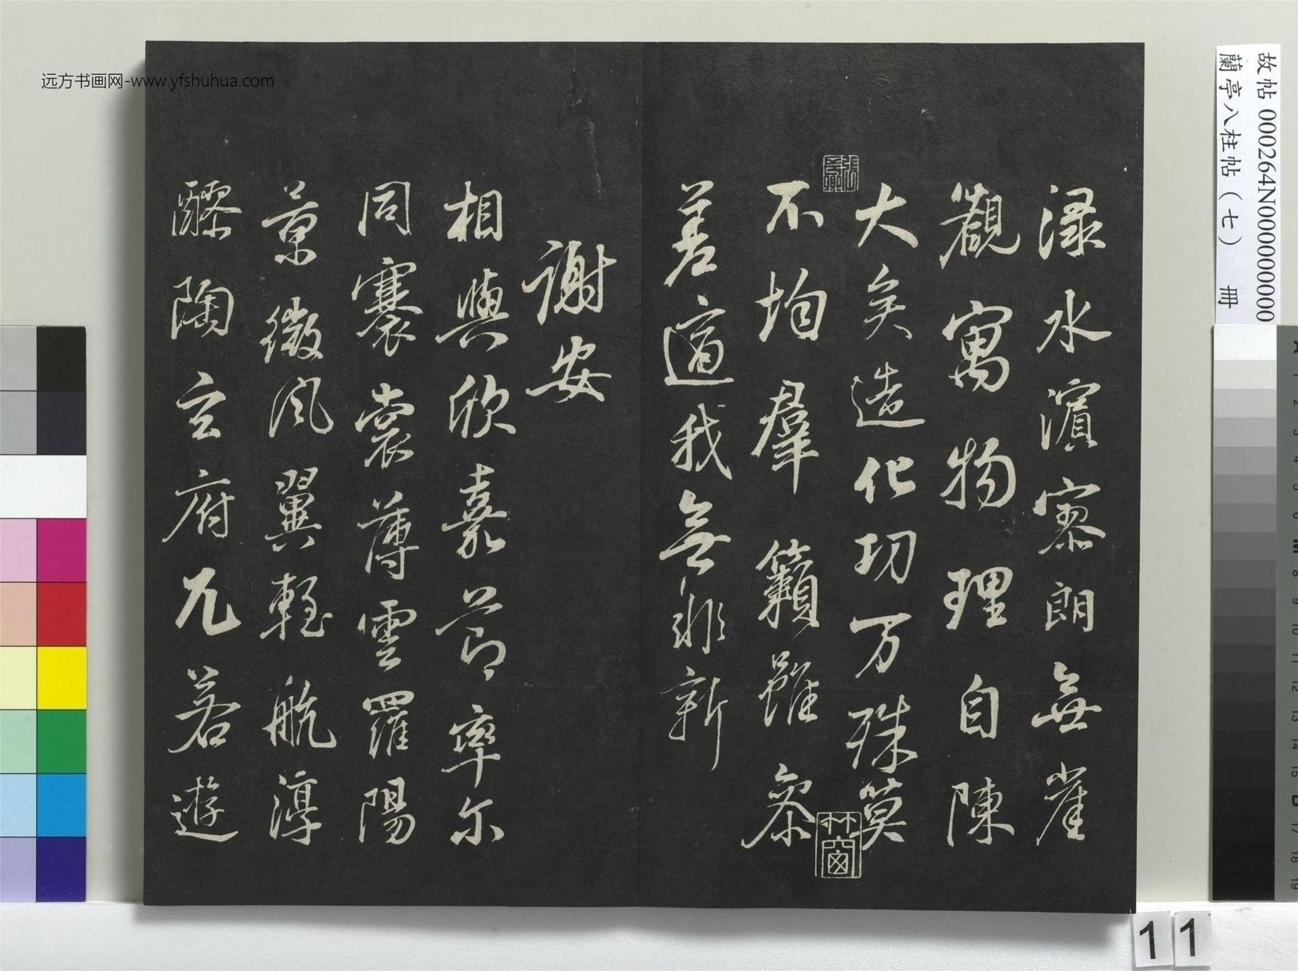 远方书画网-www.yfshuhua.com
故帖 000264N000000000
蘭亭八柱帖(七) 冊
渌水濱寥朗無崖
觀寓物理自陳
大矣造化功万殊莫
不均羣籟雖參
差適我無非新
謝安
相與欣嘉節率尔
同褰裳薄雲羅陽
景微風翼輕航淳
醪陶玄府兀若遊
竹窗
11